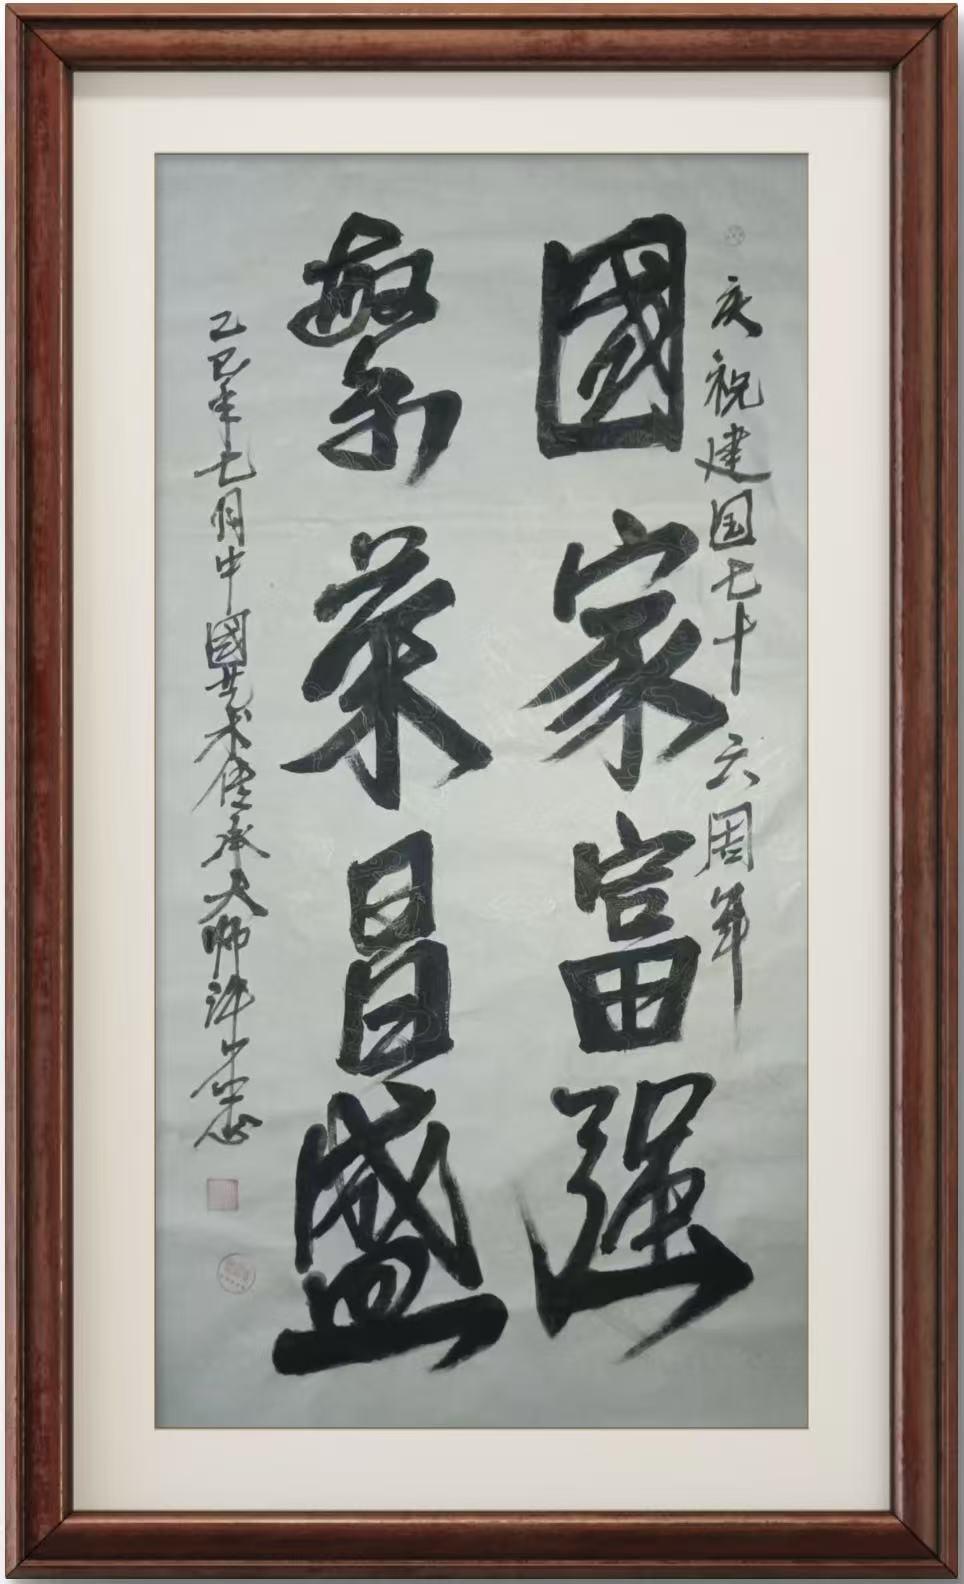 庆祝建国七十六周年
國家富强
繁荣昌盛
乙巳年七月中國艺术传承大师许